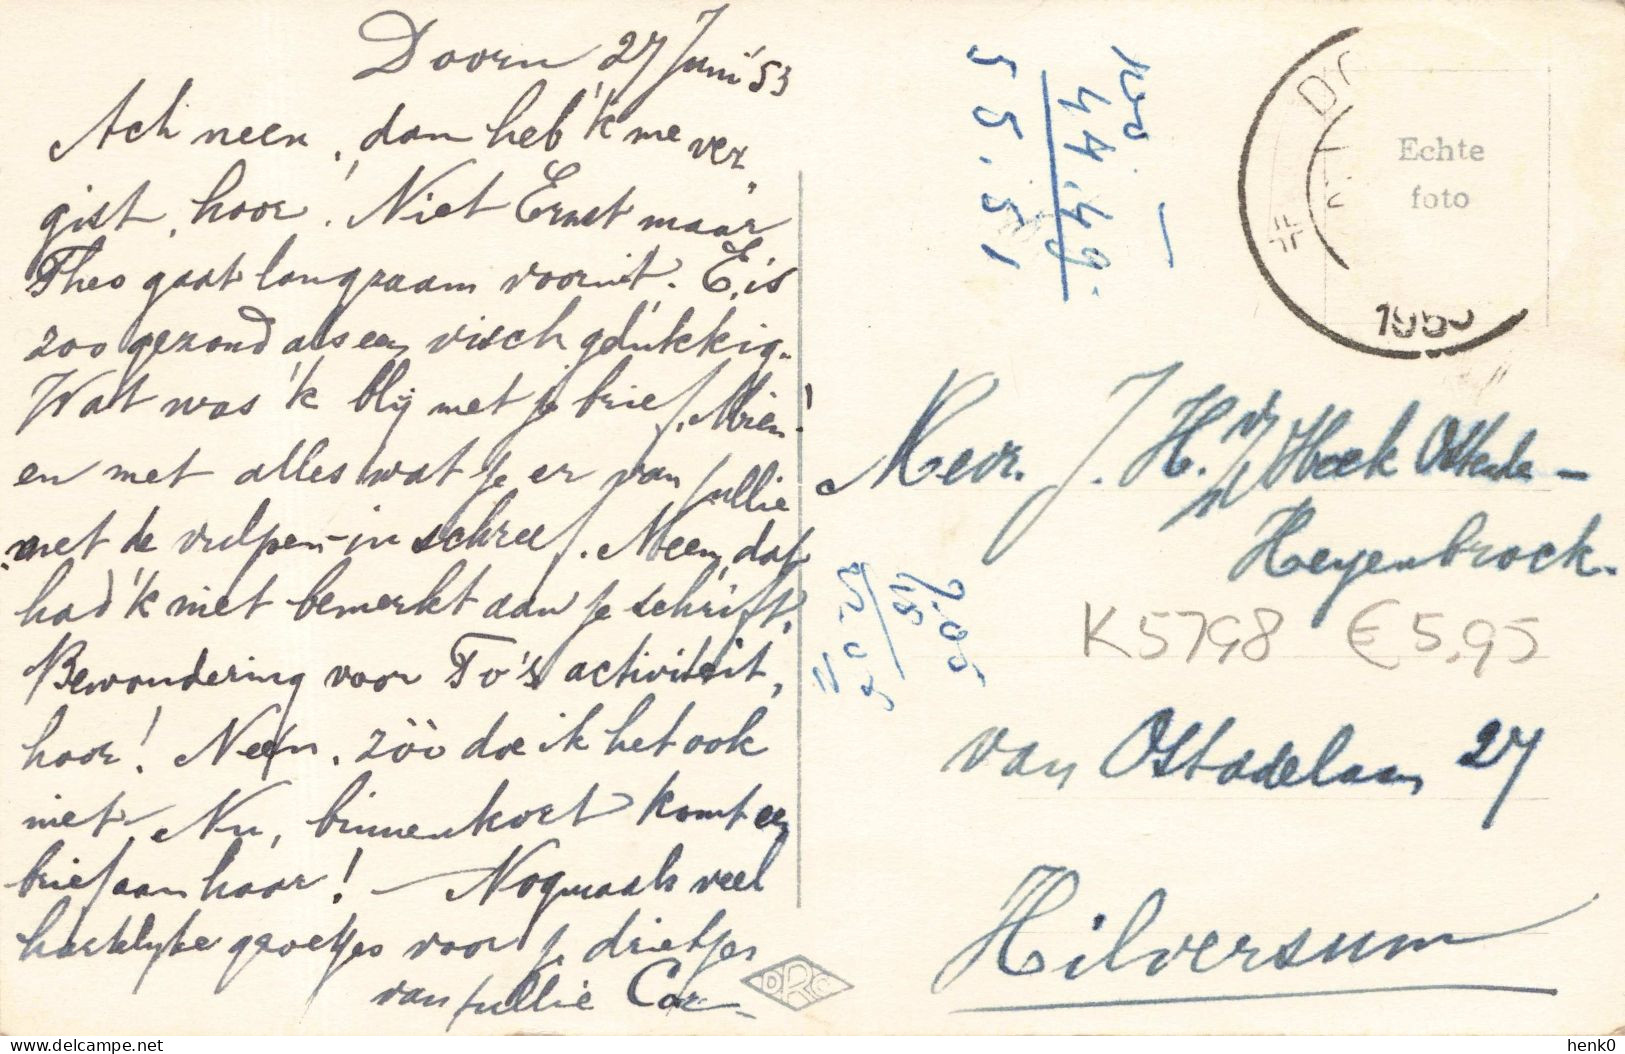 Doorn 27 Juni '53
Ach neen, dan heb 'k me ver„
gist, hoor! Niet Ernst maar
Theo gaat langzaam vooruit. E. is
zoo gezond als een visch gelukkig.
Wat was 'k blij met je brief, Mien!
en met alles wat je er van jullie
met de vulpen-in schreef. Neen, dat
had 'k niet bemerkt aan je schrift.
Bewondering voor To's activiteit,
hoor! Neen, zóó doe ik het ook
niet. Nu, binnenkort komt een
brief aan haar! — Nogmaals veel
hartelijke groetjes voor je drietjes
van jullie Cor
DRC
44.49.
55.51
7.05
Echte
foto
1953
Mevr. J. H. v/d Hoek Ostende-
Heyenbrock.
K5798 € 5,95
van Ostadelaan 27
Hilversum
delcampe.net
henk0